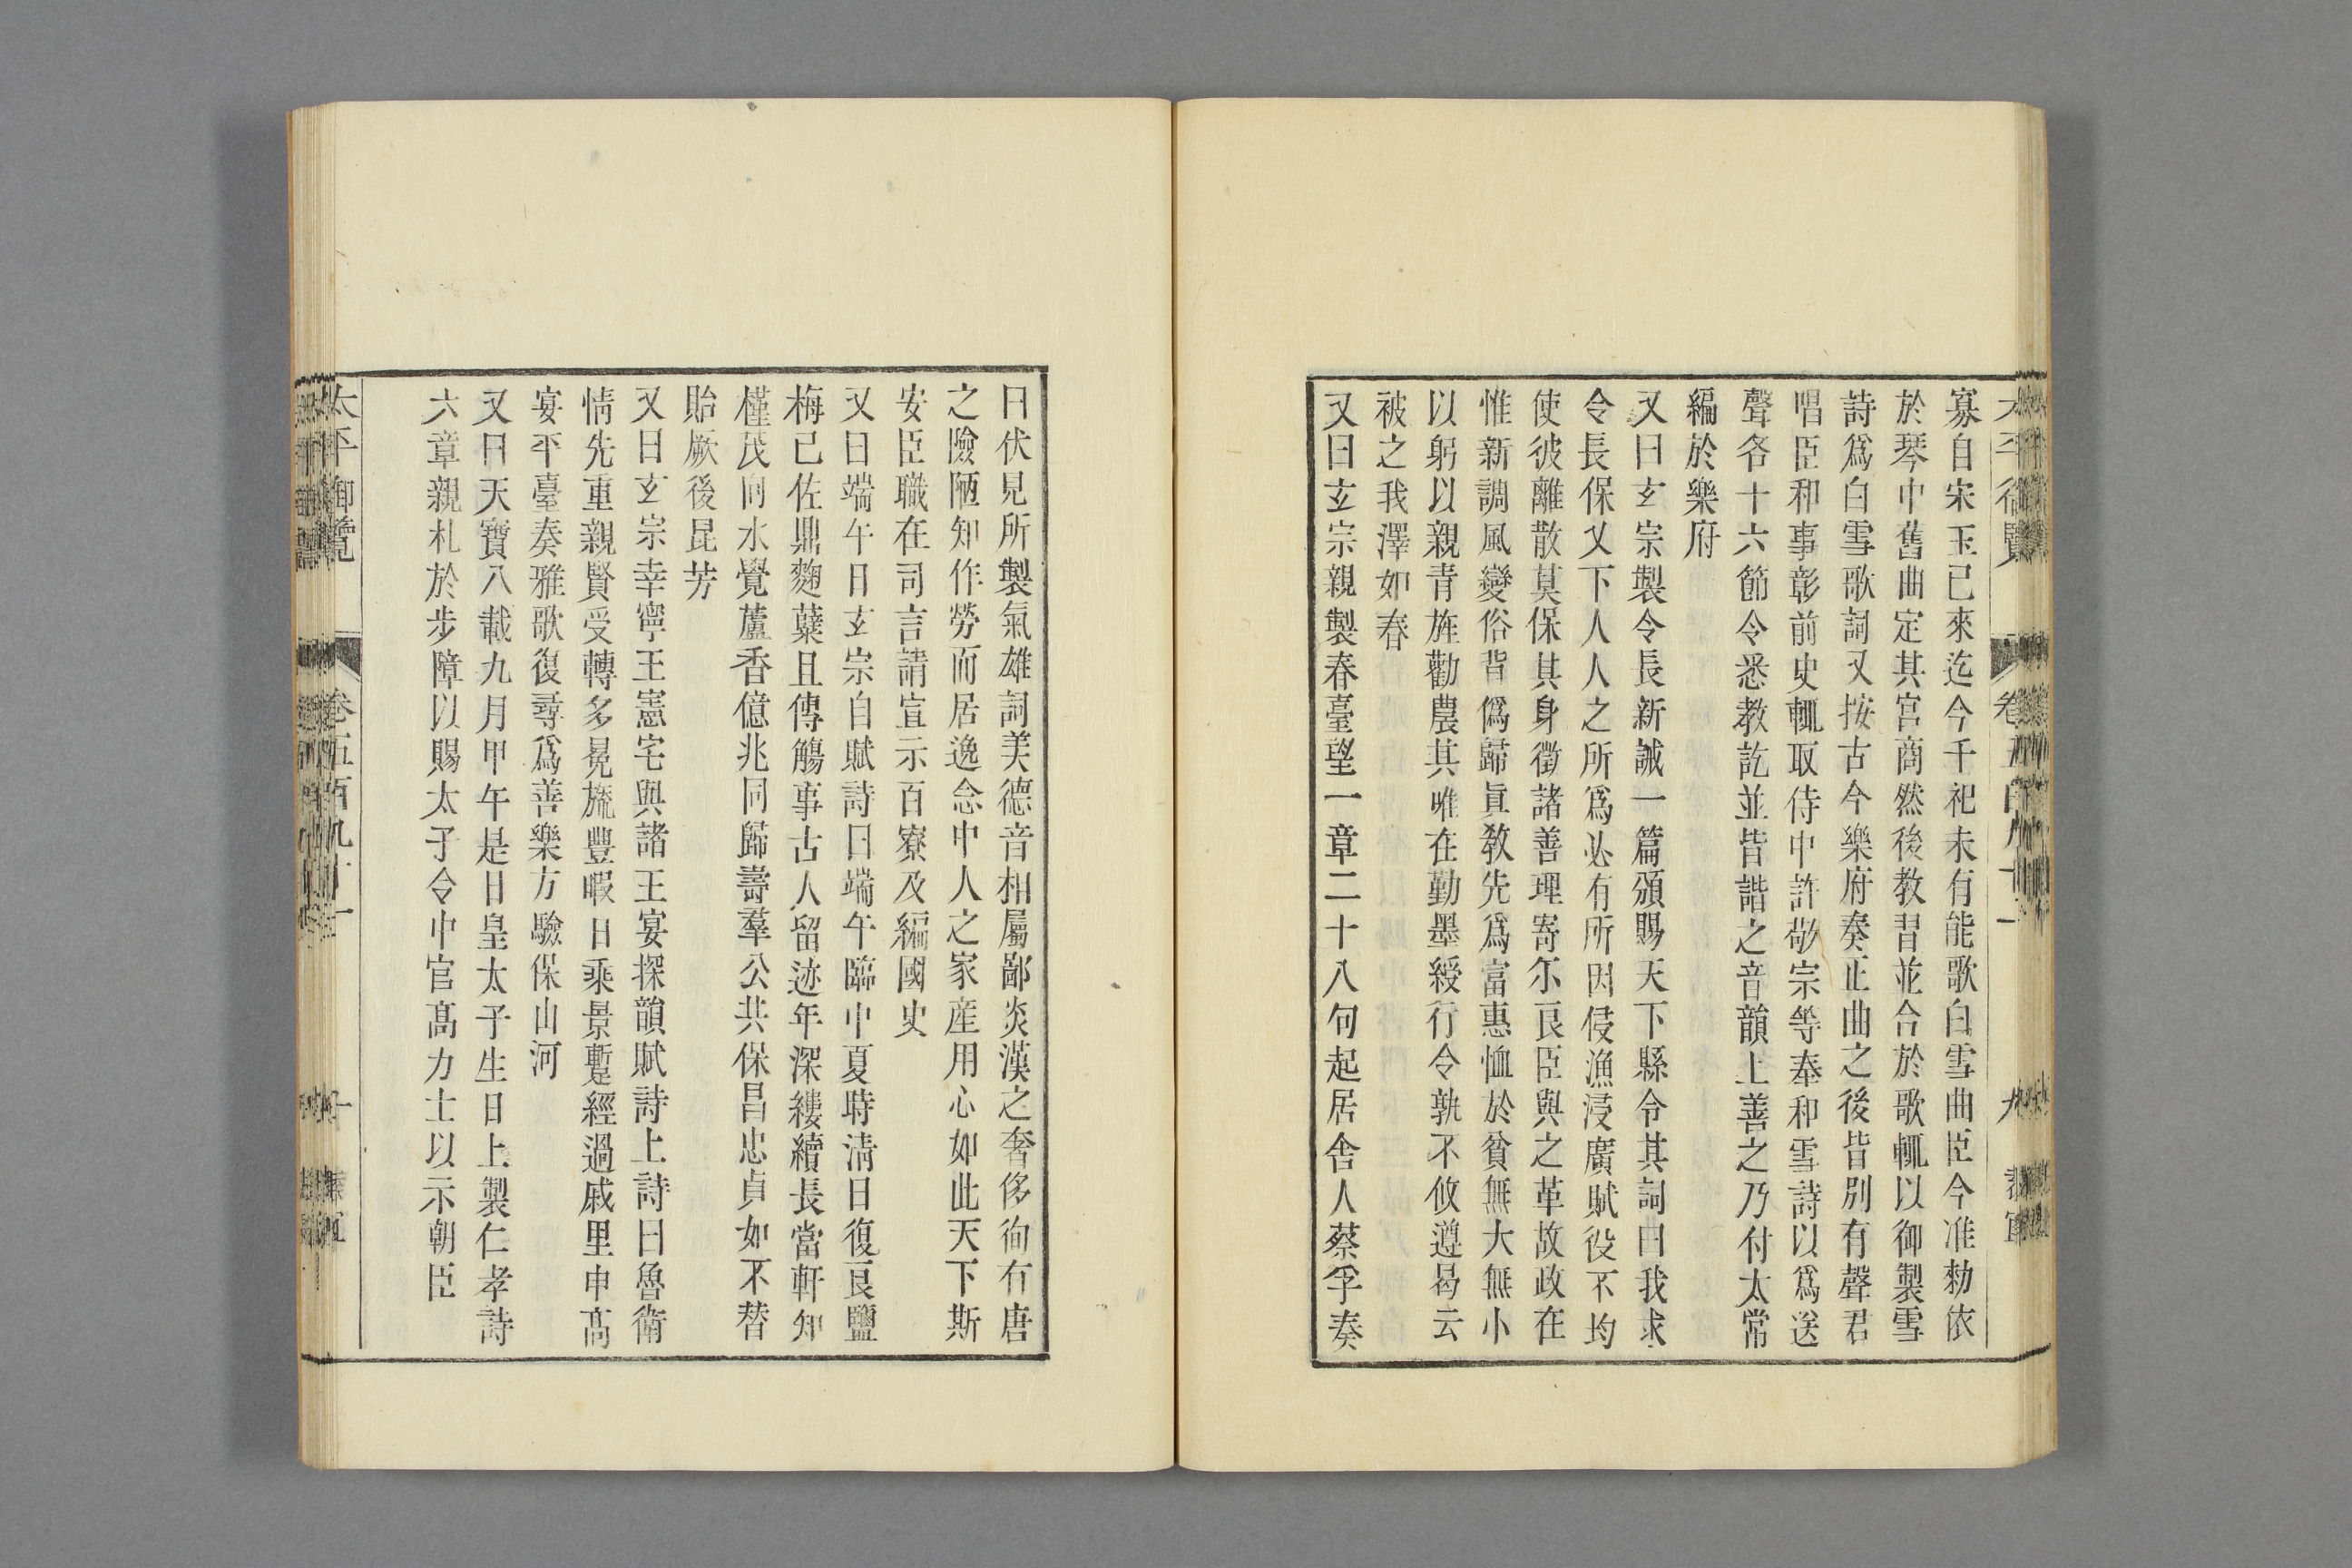 寡自宋玉已來迄今千祀未有能歌白雪曲臣今准勑依
於琴中舊曲定其宮商然後教習並合於歌輒以御製雪
詩爲白雪歌詞又按古今樂府奏正曲之後皆別有聲君
唱臣和事彰前史輒取侍中許敬宗等奉和雪詩以爲送
聲各十六節令悉教訖並皆諧之音韻上善之乃付太常
編於樂府
又曰玄宗製令長新誡一篇頒賜天下縣令其詞曰我求
令長保乂下人人之所爲必有所因侵漁浸廣賦役不均
使彼離散莫保其身徵諸善理寄尓良臣與之革故政在
惟新調風變俗背僞歸眞教先爲富惠恤於貧無大無小
以躬以親青旌勸農其唯在勤墨綬行令孰不攸遵曷云
被之我澤如春
又曰玄宗親製春臺望一章二十八句起居舍人蔡孚奏
曰伏見所製氣雄詞美德音相屬鄙炎漢之奢侈徇有唐
之險陋知作勞而居逸念中人之家産用心如此天下斯
安臣職在司言請宣示百寮及編國史
又曰端午日玄宗自賦詩曰端午臨中夏時淸日復長鹽
梅已佐鼎麴蘖且傳觴事古人留迹年深縷續長當軒知
槿茂向水覺蘆香億兆同歸壽羣公共保昌忠貞如不替
貽厥後昆芳
又曰玄宗幸寧王憲宅與諸王宴探韻賦詩上詩曰魯衛
情先重親賢受轉多冕旒豐暇日乘景蹔經過戚里申髙
宴平臺奏雅歌復尋爲善樂方驗保山河
又曰天寶八載九月甲午是日皇太子生日上製仁孝詩
六章親札於步障以賜太子令中官髙力士以示朝臣
太平御覽 卷五百九十一 十